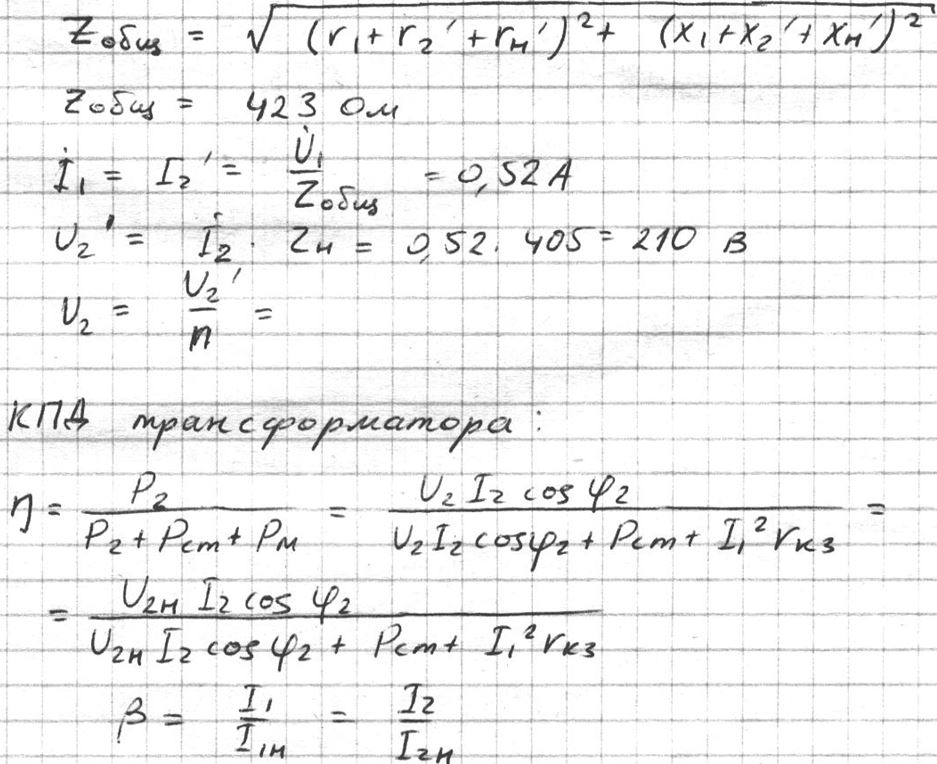 Zобщ = √(r₁ + r₂' + rн')² + (x₁ + x₂' + xн')²
Zобщ = 423 Ом
İ₁ = I₂' = U̇₁/Zобщ = 0,52 А
U₂' = İ₂ · Zн = 0,52 · 405 = 210 В
U₂ = U₂'/n =
КПД трансформатора:
η = P₂/(P₂ + Pст + Pм) = U₂ I₂ cos φ₂/(U₂ I₂ cos φ₂ + Pст + I₁² rкз) =
= U₂н I₂ cos φ₂/(U₂н I₂ cos φ₂ + Pст + I₁² rкз)
β = I₁/I₁н = I₂/I₂н